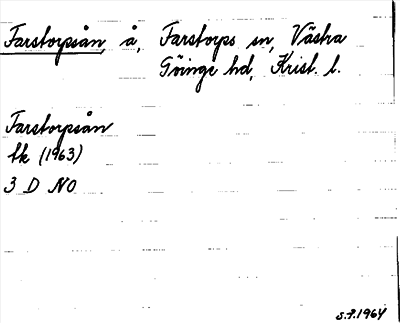 Farstorpsån, å, Farstorps sn, Västra
Göinge hd, Krist. l.
Farstorpsån
tk (1963)
3 D NO
S.F. 1964